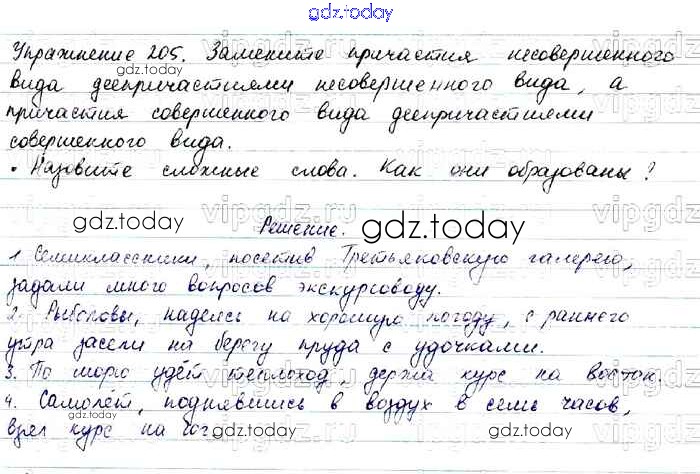 gdz.today
Упражнение 205. Замените причастия несовершенного
вида деепричастиями несовершенного вида, а
gdz.today
причастия совершенного вида деепричастиями
совершенного вида.
• Назовите сложные слова. Как они образованы?
vipgdz.ru
gdz.today
Решение.
gdz.today
1. Семиклассники, посетив Третьяковскую галерею,
задали много вопросов экскурсоводу.
2. Рыболовы, надеясь на хорошую погоду, с раннего
утра засели на берегу пруда с удочками.
3. По морю идёт теплоход, держа курс на восток.
gdz.today
4. Самолёт, поднявшись в воздух в семь часов,
взял курс на юг.
gdz.today